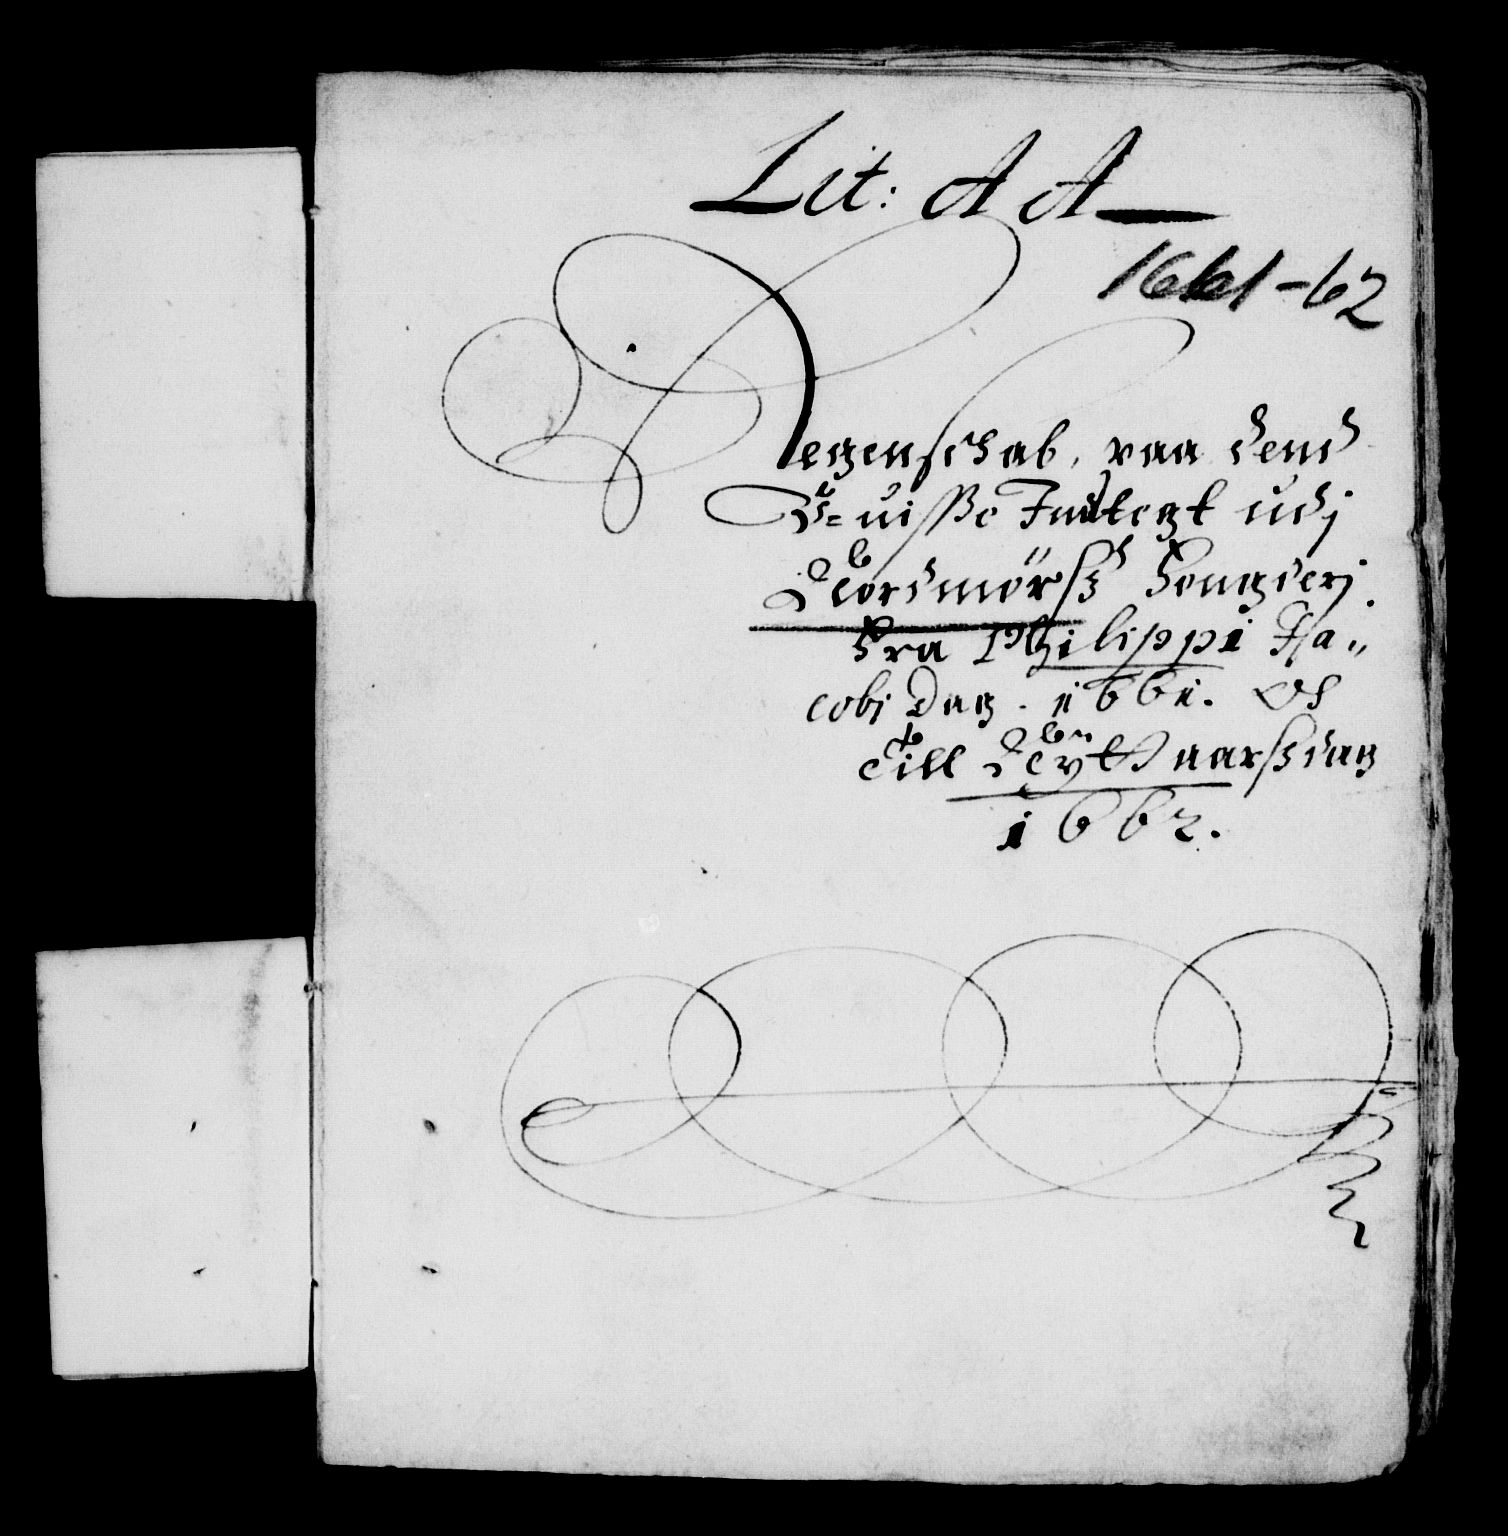 Lit: A A
1661-62
Regenschab, paa dend
U-uisse Indtegt udj
Nordmørsz Fougderj.
Fra Philippi Ja„
cobj Dag. 1661. Och
till Nytt aarszdag
1662.